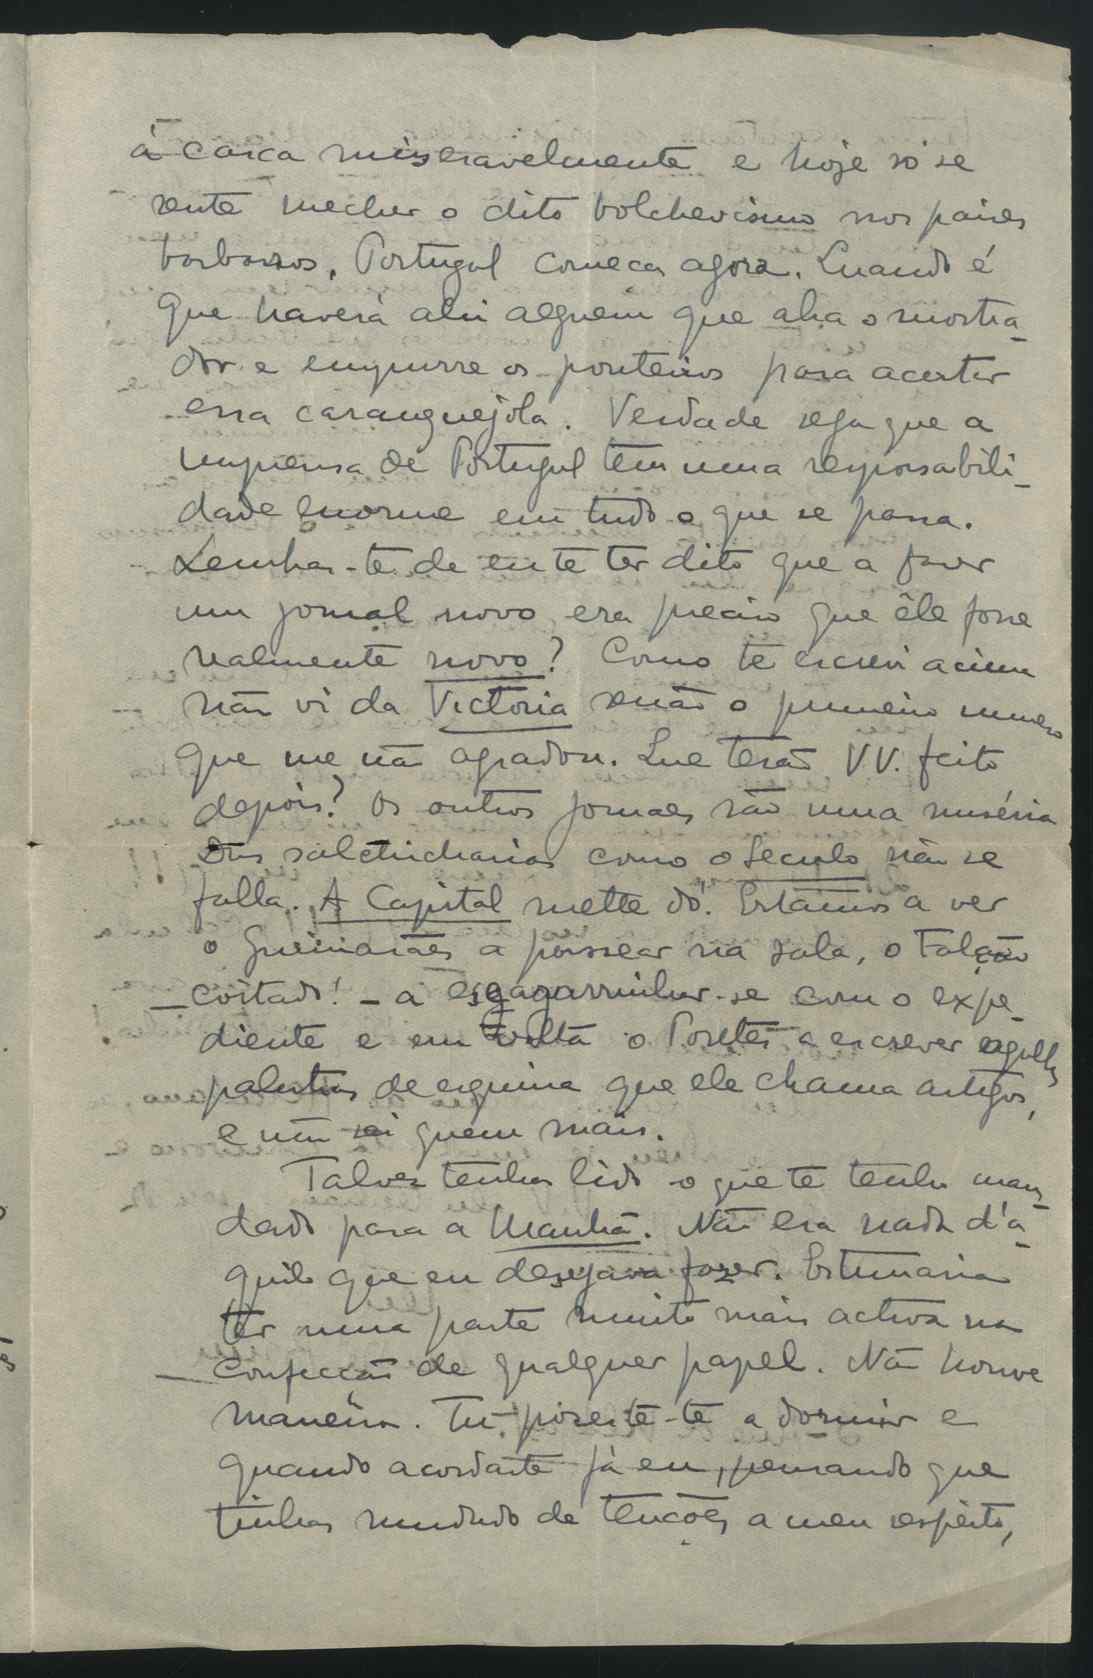 à casca miseravelmente e hoje só se
sente mecher o dito bolchevismo nos paises
barbaros. Portugal começa agora. Quando é
que haverá ahi alguem que abra o mostra-
dor e empurre os ponteiros para acertar
essa caranguejola. Verdade seja que a
imprensa de Portugal tem uma responsabili-
dade enorme em tudo o que se passa.
Lembras-te de eu te ter dito que a fazer
um jornal novo era preciso que êle fosse
realmente novo? Como te escrevi acima
não vi da Victoria senão o primeiro numero
que me não agradou. Que terão VV. feito
depois? Os outros jornaes são uma miséria
Das salchicharias como o Seculo não se
falla. A Capital mette dó. Estamos a ver
o Guimarães a passear na sala, o Falcão
— coitado! — a esgagarrinhar-se com o expe-
diente e em volta o a escrever
palestras de esquina que ele chama artigos,
e não sei quem mais.
Talvez tenhas lido o que te tenho man-
dado para a Manhã. Não era nada d'a-
quilo que eu desejava fazer. Estimaria
ter uma parte muito mais activa na
confecção de qualquer papel. Não houve
maneira. Tu pozeste-te a dormir e
quando acordaste já eu, pensando que
tinhas mudado de tenções a meu respeito,